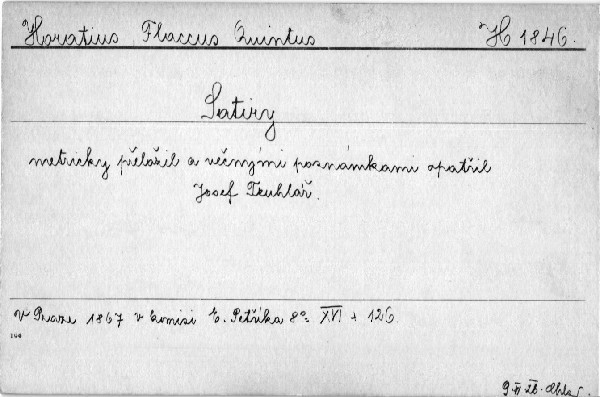 Horatius Flaccus Quintus H 1846.
Satiry
metricky přeložil a věčnými poznámkami opatřil
Josef Truhlář.
V Praze 1867 v komisi E. Petříka 8° XVI + 126.